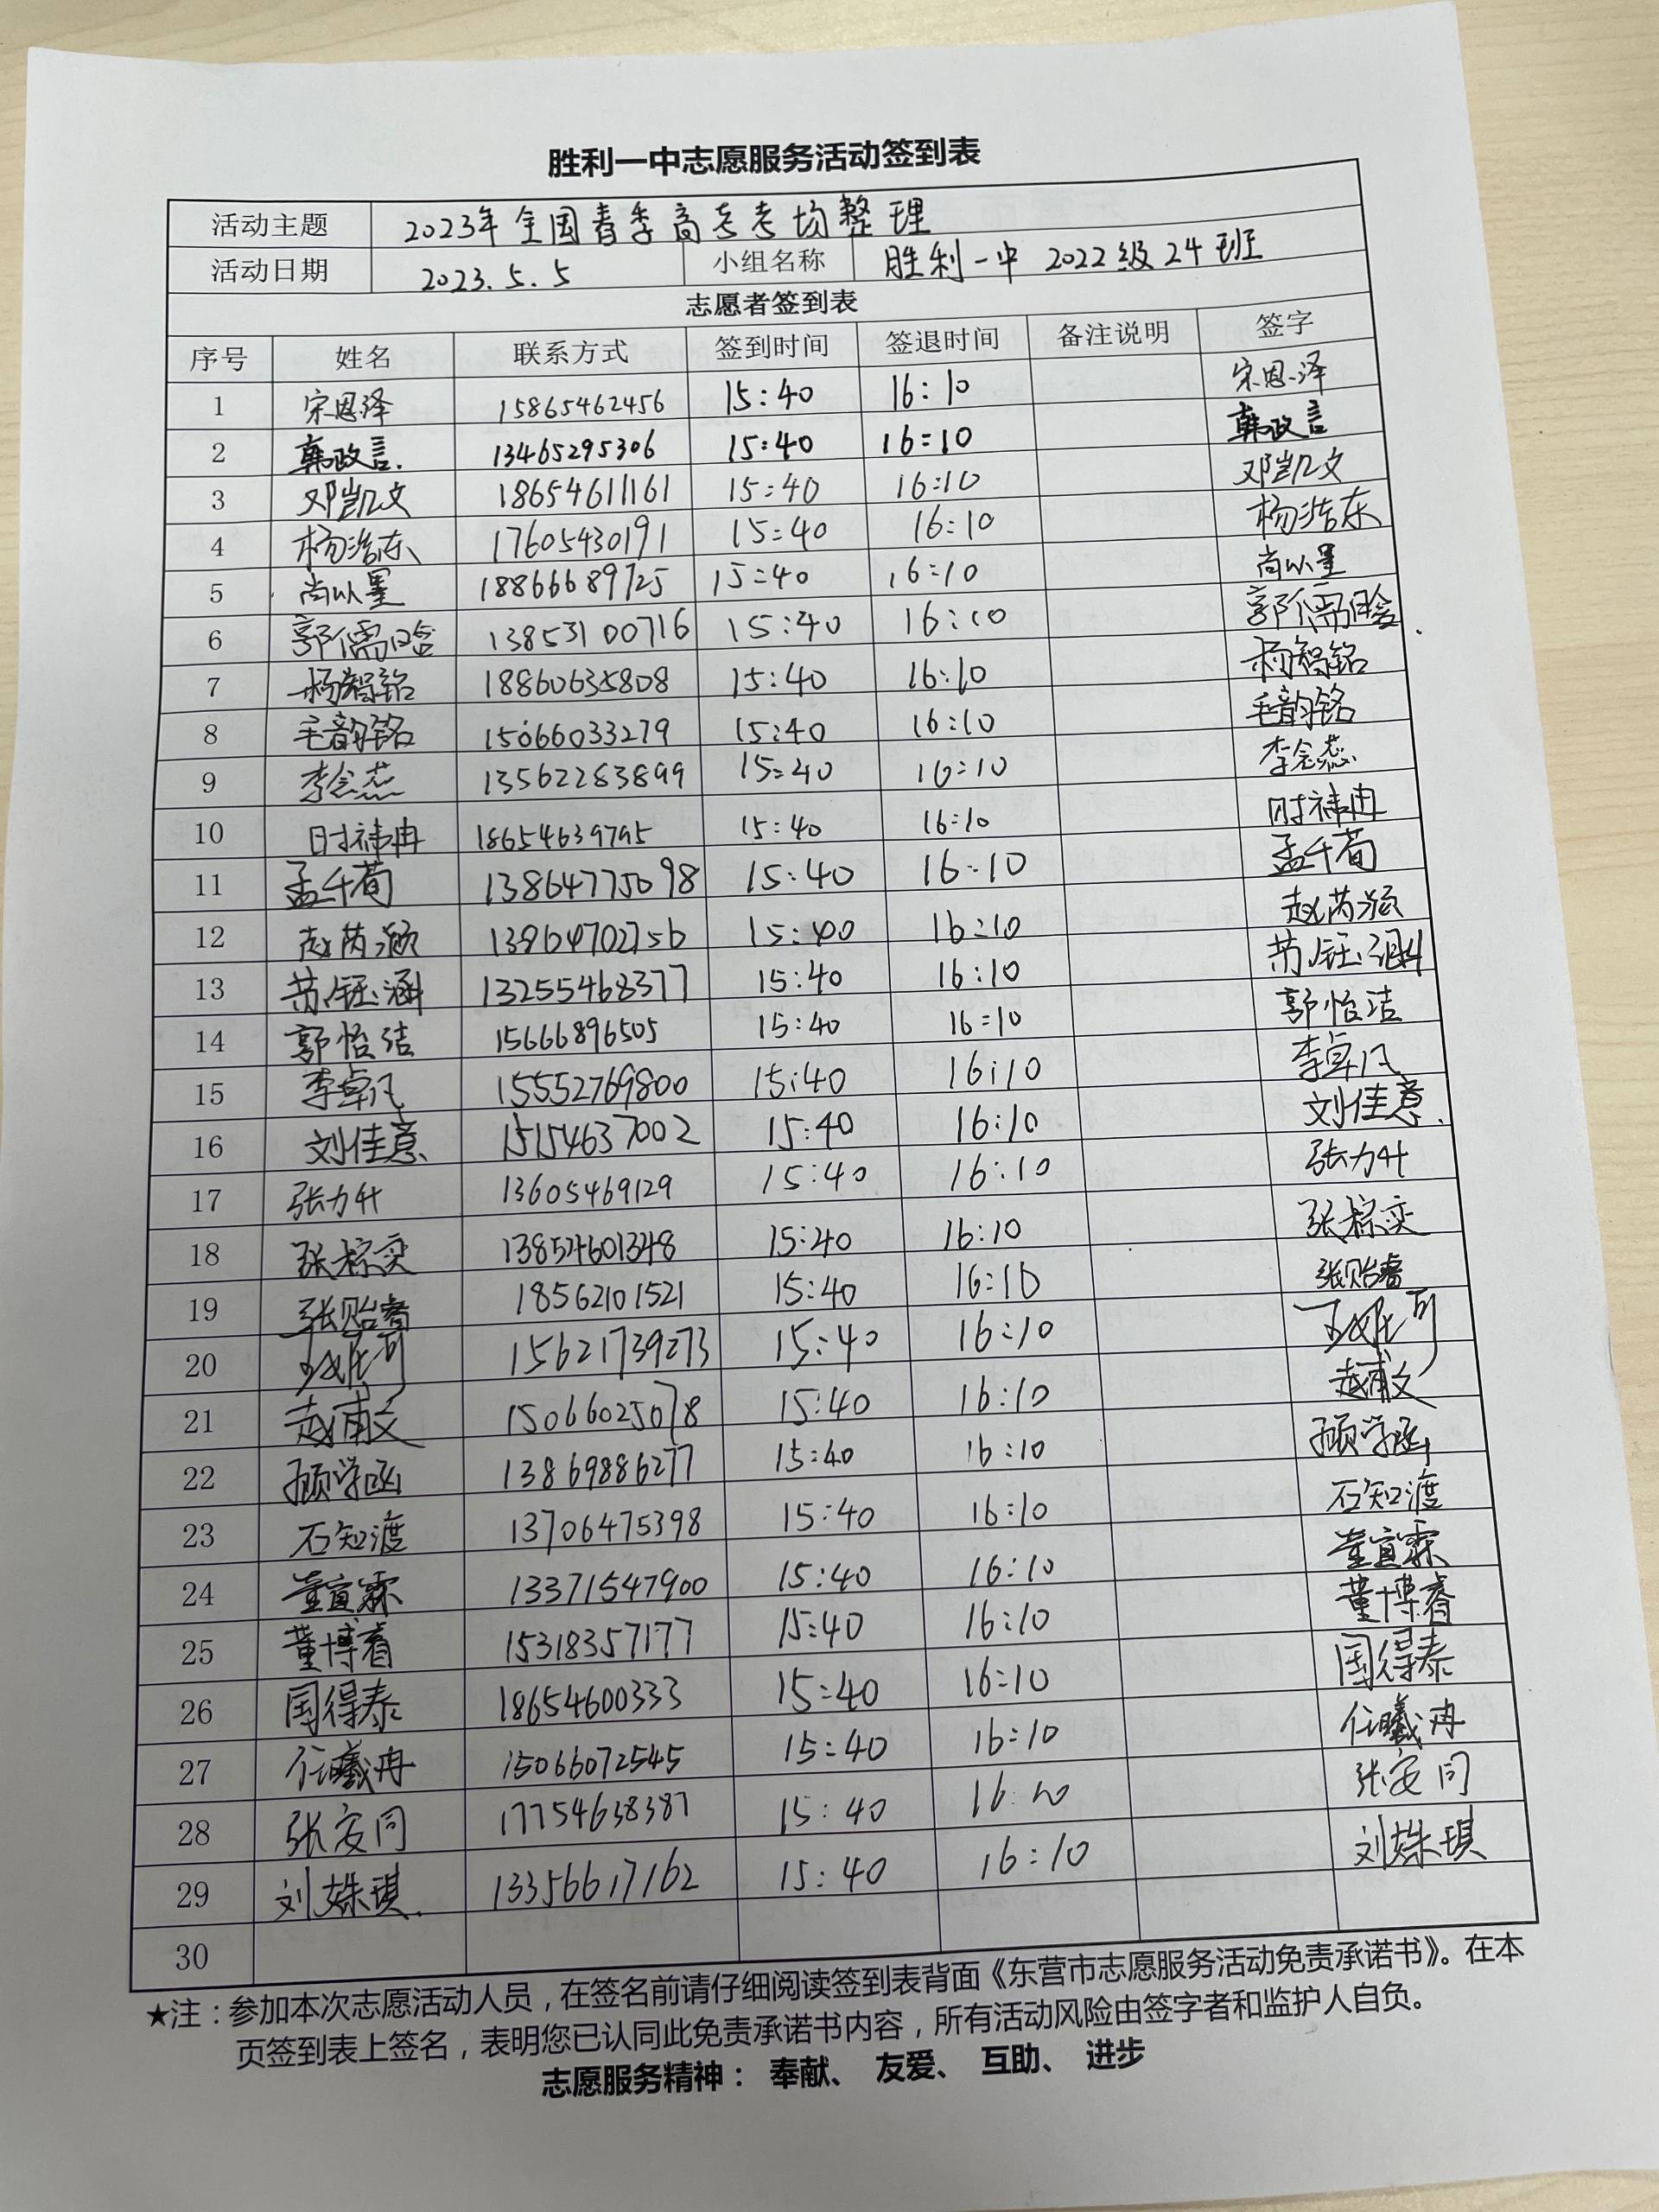 胜利一中志愿服务活动签到表
活动主题 2023年全国春季高考考场整理
活动日期 2023.5.5 小组名称 胜利一中 2022级24班
志愿者签到表
序号 姓名 联系方式 签到时间 签退时间 备注说明 签字
1 宋恩泽 15865462456 15:40 16:10 宋恩泽
2 韩政言. 13465295306 15:40 16:10 韩政言
3 邓凯文 18654611161 15:40 16:10 邓凯文
4 杨浩东 17605430191 15:40 16:10 杨浩东
5 尚以墨 18866689725 15:40 16:10 尚以墨
6 郭儒晗 13853100716 15:40 16:10 郭儒晗
7 杨智铭 18860635808 15:40 16:10 杨智铭
8 毛韵铭 15066033279 15:40 16:10 毛韵铭
9 李念燕 13562283899 15:40 16:10 李念燕
10 时祎冉 18654639795 15:40 16:10 时祎冉
11 孟千荀 13864775098 15:40 16:10 孟千荀
12 赵芮涵 13964702756 15:40 16:10 赵芮涵
13 苏钰涵 13255468377 15:40 16:10 苏钰涵
14 郭怡洁 15666896505 15:40 16:10 郭怡洁
15 李卓凡 15552769800 15:40 16:10 李卓凡
16 刘佳意 15154637002 15:40 16:10 刘佳意.
17 张力升 13605469129 15:40 16:10 张力升
18 张棕奕 13854601348 15:40 16:10 张棕奕
19 张贻睿 18562101521 15:40 16:10 张贻睿
20 15621739273 15:40 16:10
21 赵甫文 15066025078 15:40 16:10 赵甫文
22 顾学函 13869886277 15:40 16:10 顾学函
23 石知渡 13706475398 15:40 16:10 石知渡
24 董宜霖 13371547900 15:40 16:10 董宜霖
25 董博睿 15318357177 15:40 16:10 董博睿
26 国得泰 18654600333 15:40 16:10 国得泰
27 任曦冉 15066072545 15:40 16:10 任曦冉
28 张安同 17754638387 15:40 16:10 张安同
29 刘姝琪. 13356617162 15:40 16:10 刘姝琪
30
★注：参加本次志愿活动人员，在签名前请仔细阅读签到表背面《东营市志愿服务活动免责承诺书》。在本
页签到表上签名，表明您已认同此免责承诺书内容，所有活动风险由签字者和监护人自负。
志愿服务精神： 奉献、 友爱、 互助、 进步